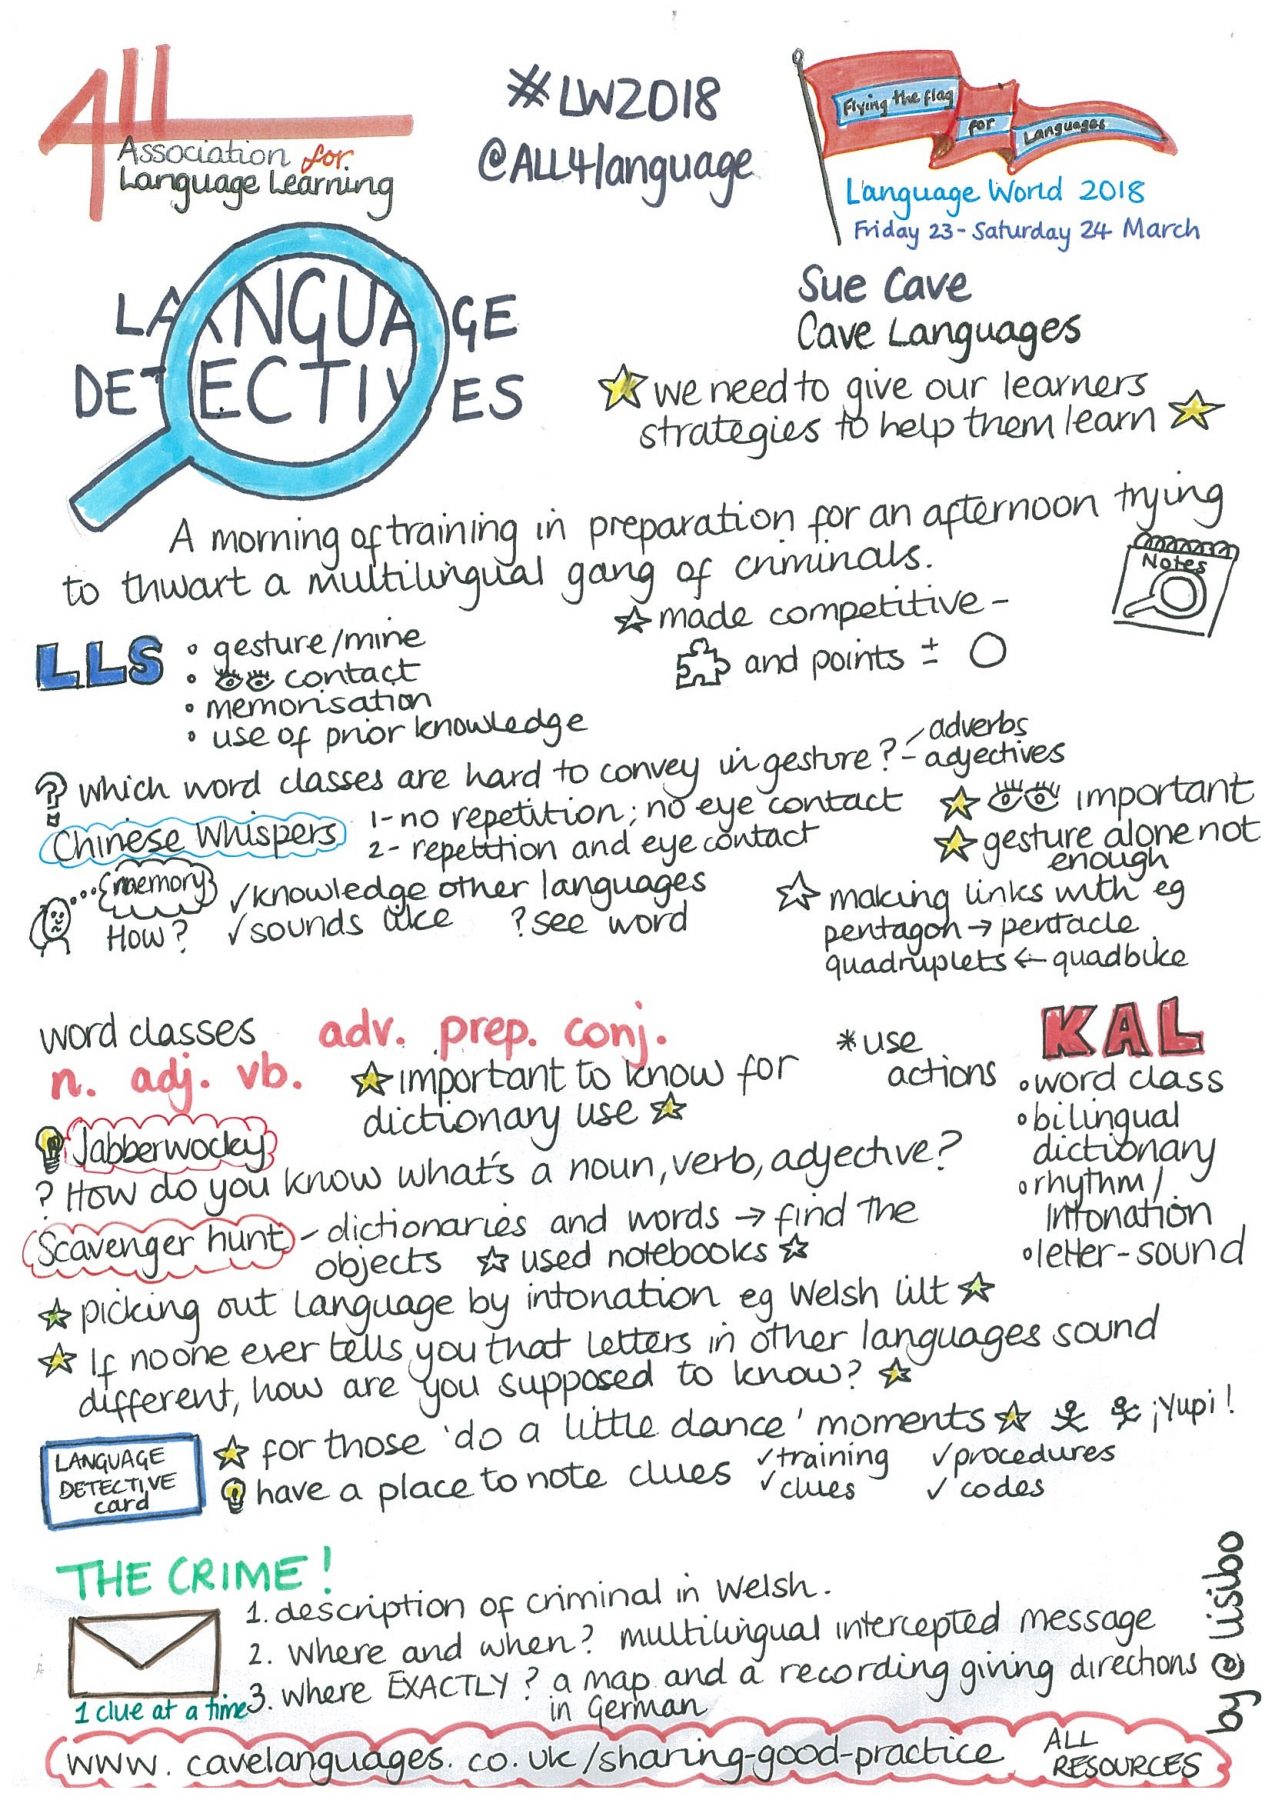 ALL
Association for
Language Learning
#LW2018
@ALL4language
Flying the flag
for
Languages
Language World 2018
Friday 23 - Saturday 24 March
LANGUAGE
DETECTIVES
Sue Cave
Cave Languages
we need to give our learners
strategies to help them learn
A morning of training in preparation for an afternoon trying
to thwart a multilingual gang of criminals.
Notes
made competitive -
and points ±
LLS
• gesture/mine
• contact
• memorisation
• use of prior knowledge
? which word classes are hard to convey in gesture? - adverbs
- adjectives
Chinese Whispers
1 - no repetition; no eye contact
2 - repetition and eye contact
important
gesture alone not
enough
memory
How?
✓knowledge other languages
✓sounds like ?see word
making links with eg
pentagon → pentacle
quadruplets ← quadbike
word classes adv. prep. conj.
n. adj. vb.
important to know for
dictionary use
*use
actions
KAL
• word class
• bilingual
dictionary
• rhythm/
intonation
• letter-sound
Jabberwocky
? How do you know what's a noun, verb, adjective?
Scavenger hunt - dictionaries and words → find the
objects used notebooks
picking out language by intonation eg Welsh lilt
If no one ever tells you that letters in other languages sound
different, how are you supposed to know?
for those 'do a little dance' moments ¡Yupi!
LANGUAGE
DETECTIVE
card
have a place to note clues ✓training ✓procedures
✓clues ✓codes
THE CRIME!
1. description of criminal in Welsh.
2. Where and when? multilingual intercepted message
3. where EXACTLY? a map and a recording giving directions
in German
1 clue at a time
by @lisibo
www.cavelanguages.co.uk/sharing-good-practice
ALL
RESOURCES